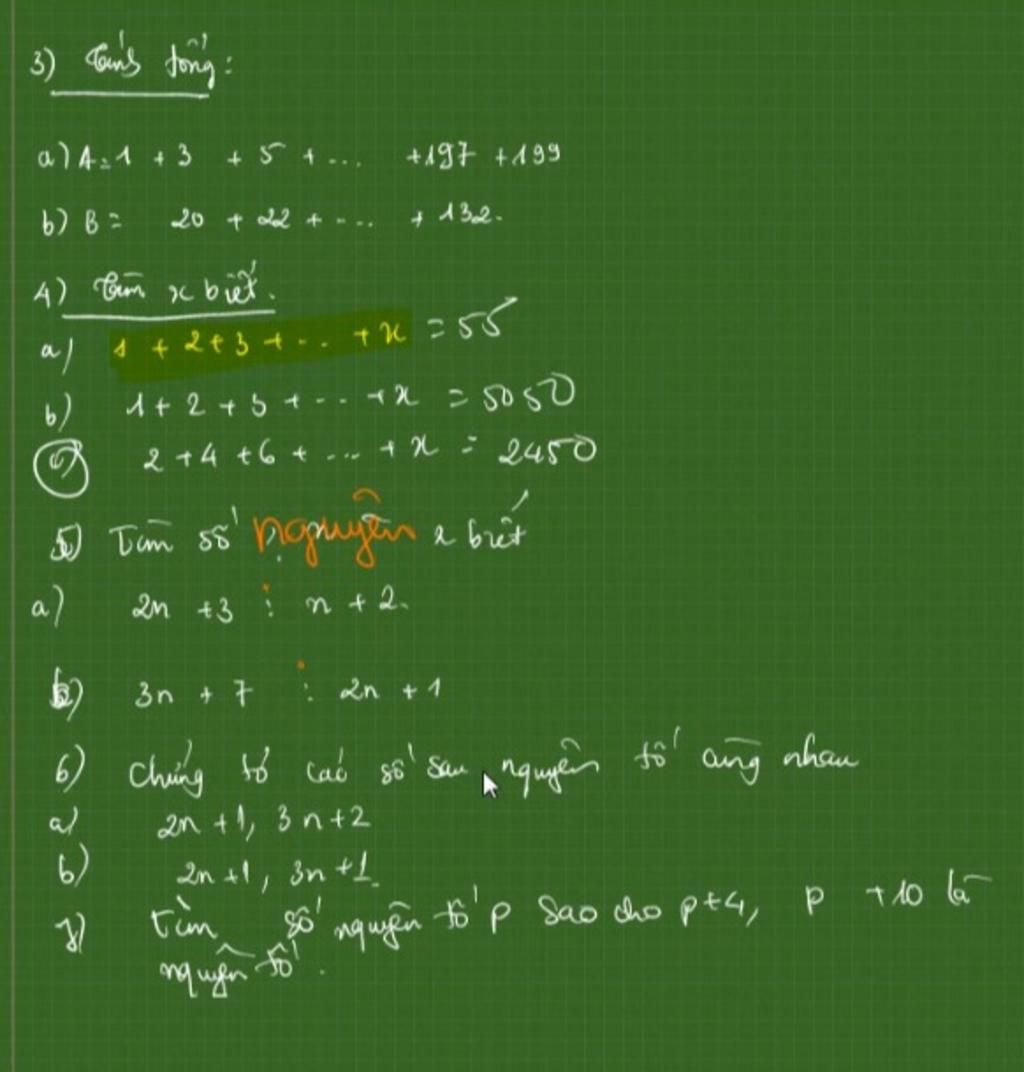 3) Tính tổng:
a) A = 1 + 3 + 5 + ... + 197 + 199
b) B = 20 + 22 + ... + 132.
4) Tìm x biết.
a) 1 + 2 + 3 + ... + x = 55
b) 1 + 2 + 3 + ... + x = 5050
c) 2 + 4 + 6 + ... + x = 2450
5) Tìm số nguyên x biết
a) 2n + 3 ⋮ n + 2.
b) 3n + 7 ⋮ 2n + 1
6) Chứng tỏ các số sau nguyên tố cùng nhau
a) 2n + 1, 3n + 2
b) 2n + 1, 3n + 1.
7) Tìm số nguyên tố p sao cho p + 4, p + 10 là
nguyên tố.